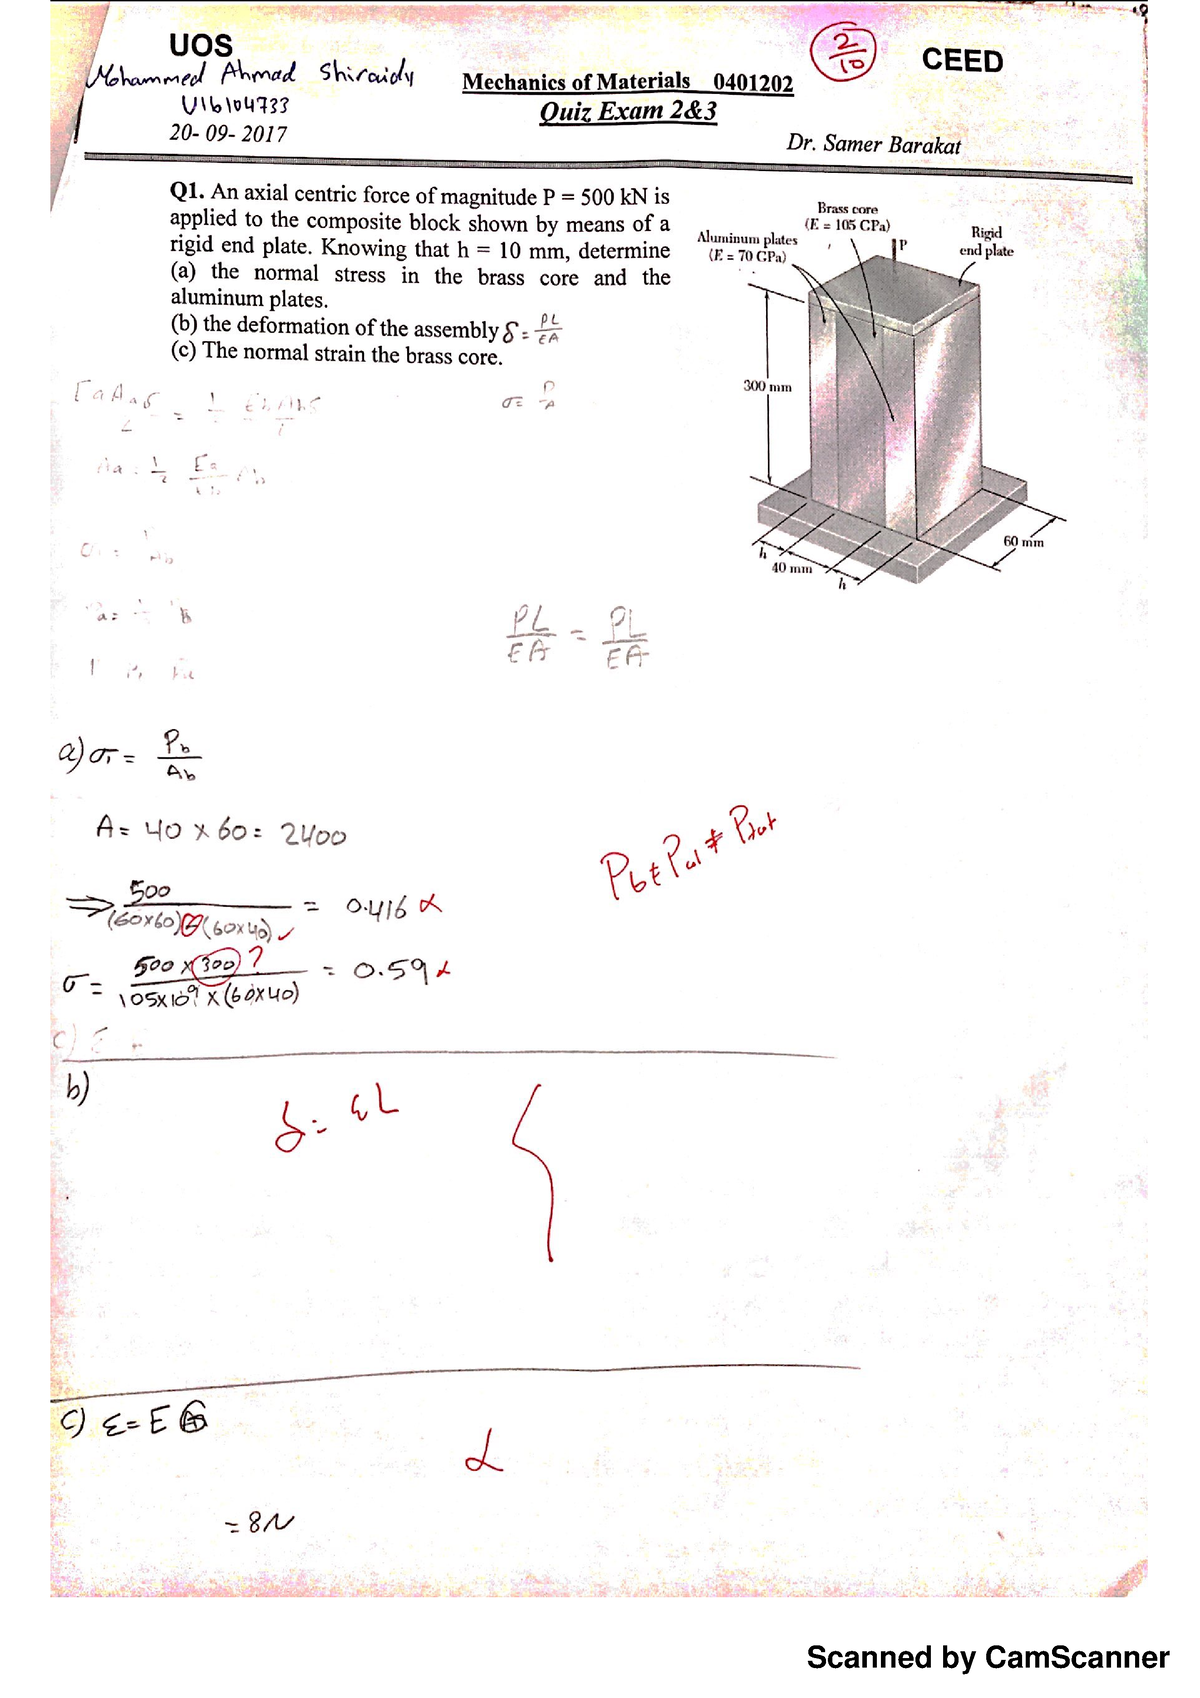 UOS
CEED
Mohammed Ahmad Shiraidy
U16104733
20- 09- 2017
Mechanics of Materials 0401202
Quiz Exam 2&3
2/10
Dr. Samer Barakat
Q1. An axial centric force of magnitude P = 500 kN is
applied to the composite block shown by means of a
rigid end plate. Knowing that h = 10 mm, determine
(a) the normal stress in the brass core and the
aluminum plates.
(b) the deformation of the assembly δ = PL/EA
(c) The normal strain the brass core.
Brass core
(E = 105 GPa)
Aluminum plates
(E = 70 GPa)
P
Rigid
end plate
300 mm
60 mm
h
40 mm
h
σ = P/A
PL/EA = PL/EA
a) σ = Pb/Ab
A = 40 × 60 = 2400
Pb + Pal ≠ Ptot
⇒ 500/(60×60)-(60×40) = 0.416
σ = 500 × 300/105×10⁹ × (60×40) = 0.59
?
b)
δ = εL
c) ε = E
= 8N
Scanned by CamScanner